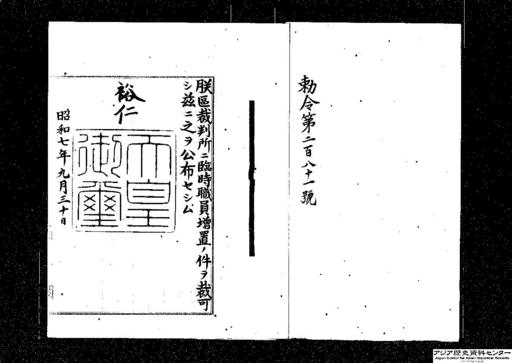 勅令第二百八十一號
朕區裁判所ニ臨時職員増置ノ件ヲ裁可
シ茲ニ之ヲ公布セシム
裕仁
天皇
御璽
昭和七年九月三十日
アジア歴史資料センター
Japan Center for Asian Historical Records